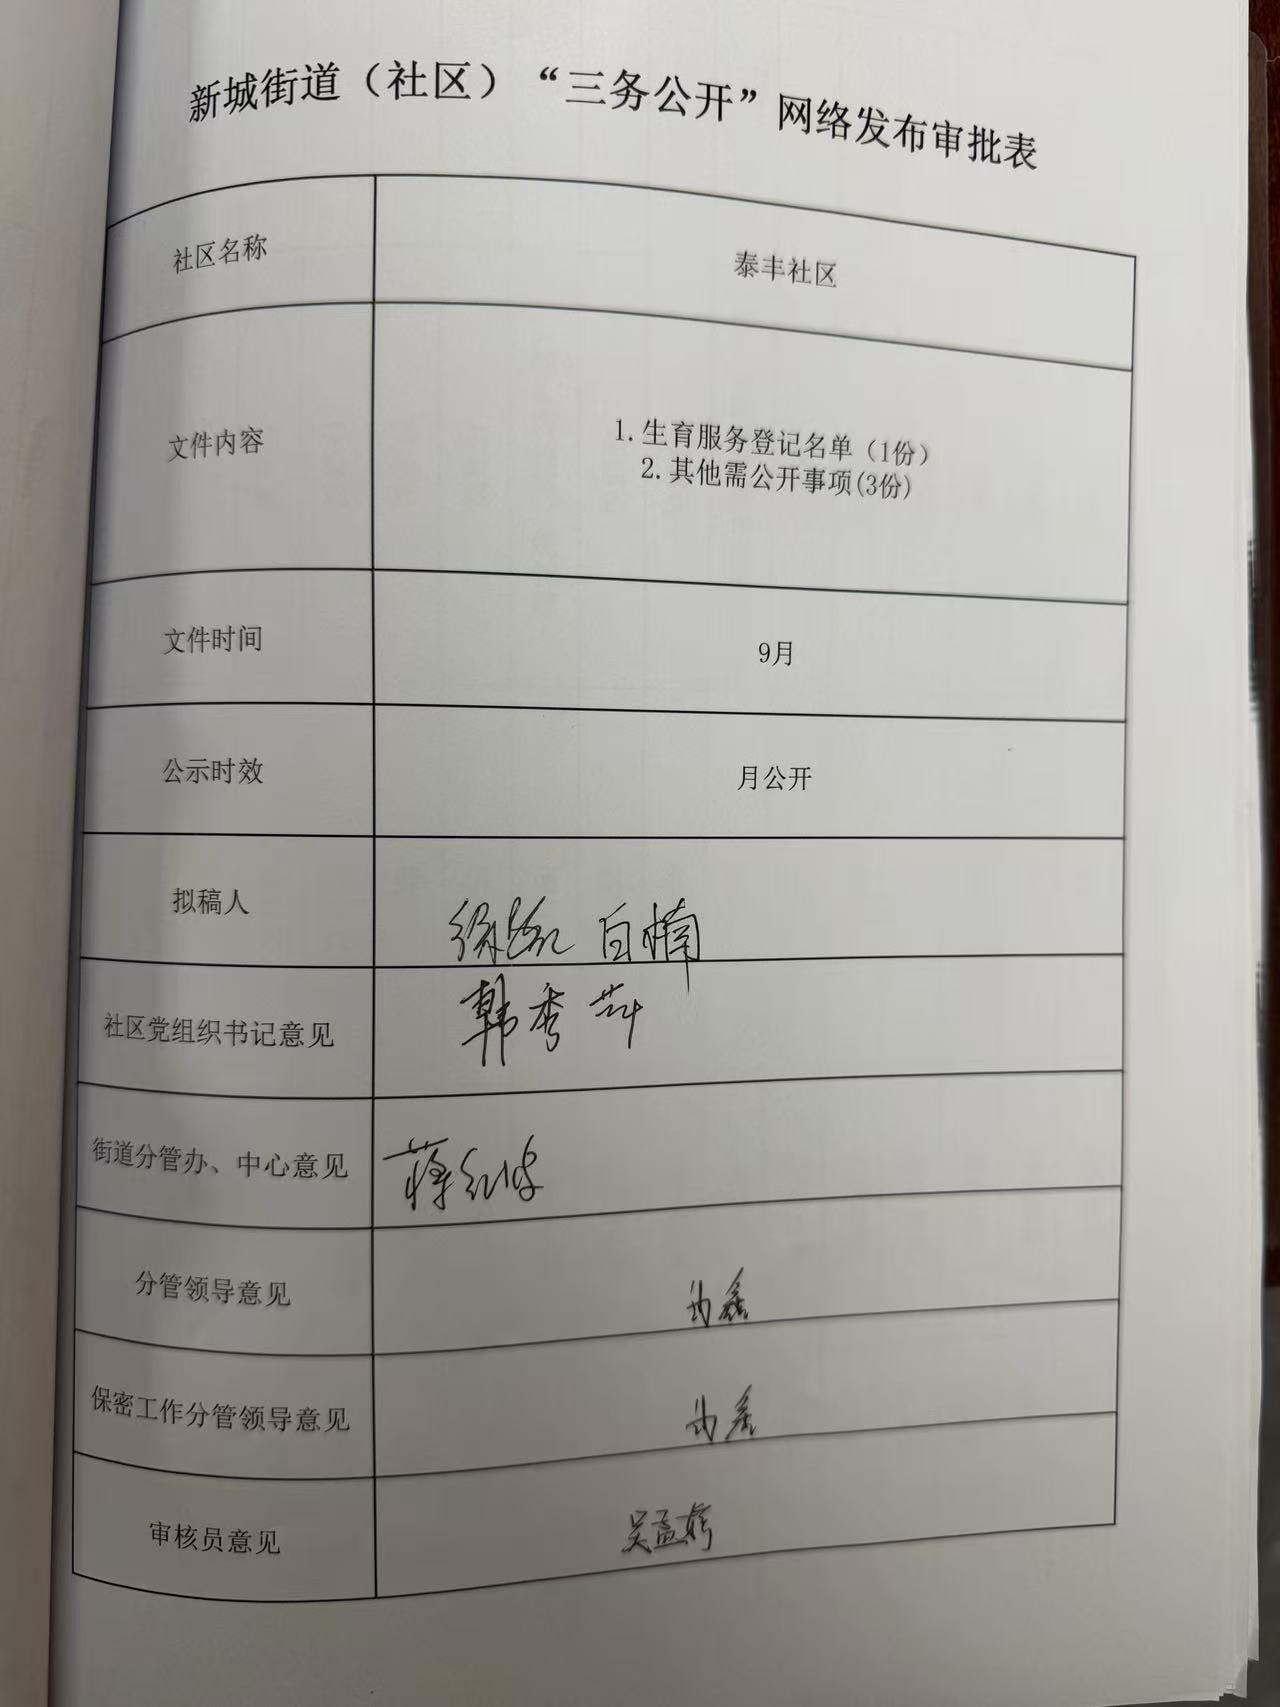 新城街道（社区）“三务公开”网络发布审批表
社区名称
泰丰社区
文件内容
1.生育服务登记名单（1份）
2.其他需公开事项(3份)
文件时间
9月
公示时效
月公开
拟稿人
白楠
社区党组织书记意见
韩秀萍
街道分管办、中心意见
蒋红波
分管领导意见
保密工作分管领导意见
审核员意见
吴孟婷